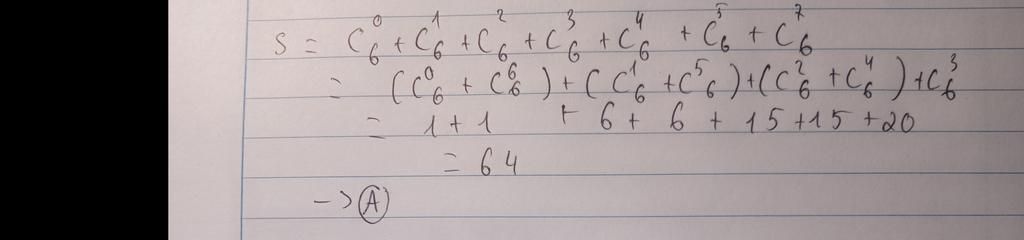 S = C₆⁰ + C₆¹ + C₆² + C₆³ + C₆⁴ + C₆⁵ + C₆⁷
= (C₆⁰ + C₆⁶) + (C₆¹ + C₆⁵) + (C₆² + C₆⁴) + C₆³
= 1 + 1 + 6 + 6 + 15 + 15 + 20
= 64
-> A